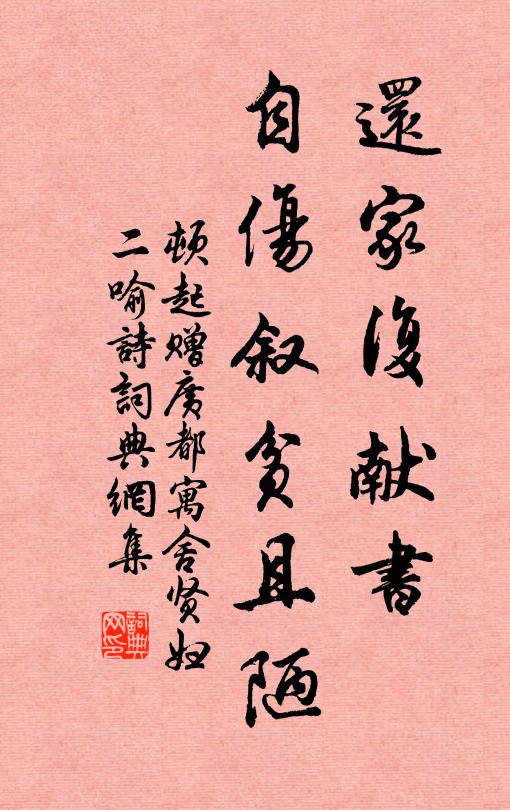 還家復献書
自傷叙貧且陋
頓起赠廣都寓舍贤妇
二喻詩詞典網集
詞典
网印